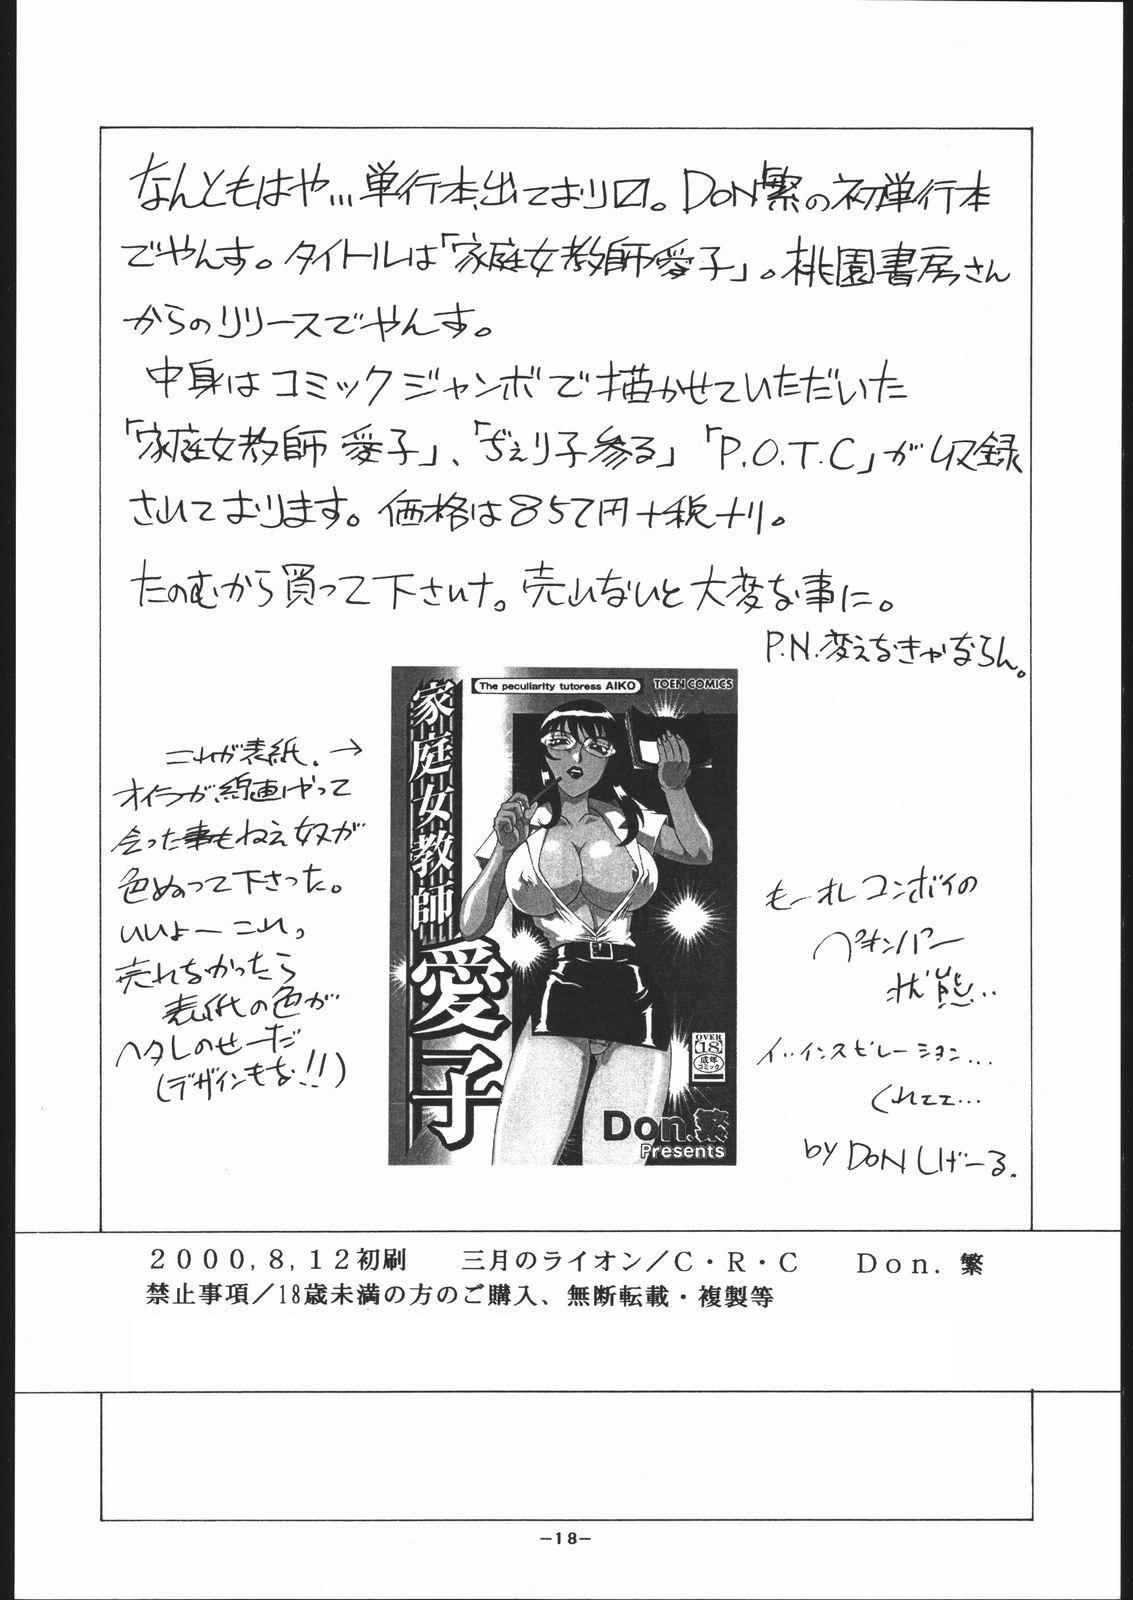 なんともはや…単行本出ており〼。DON繁の初単行本
でやんす。タイトルは「家庭女教師愛子」。桃園書房さん
からのリリースでやんす。
中身はコミックジャンボで描かせていただいた
「家庭女教師 愛子」、「ぢぇり子参る」「P.O.T.C」が収録
されております。価格は857円+税ナリ。
たのむから買って下さいナ。売れないと大変な事に。
P.N.変えなきゃならん。
これが表紙。→
オイラが線画けやって
会った事もねえ奴が
色ぬって下さった。
いいよー これ、
売れなかったら
表紙の色が
ヘタレのせーだ
(デザインもな!!)
The peculiarity tutoress AIKO
TOEN COMICS
家庭女教師
愛子
OVER
18
成年
コミック
Don.繁
Presents
もーオレ コンボイの
状態…
イ..インスピレーション…
くれてて…
by DON しげーる.
2000,8,12初刷 三月のライオン/C・R・C Don.繁
禁止事項/18歳未満の方のご購入、無断転載・複製等
-18-